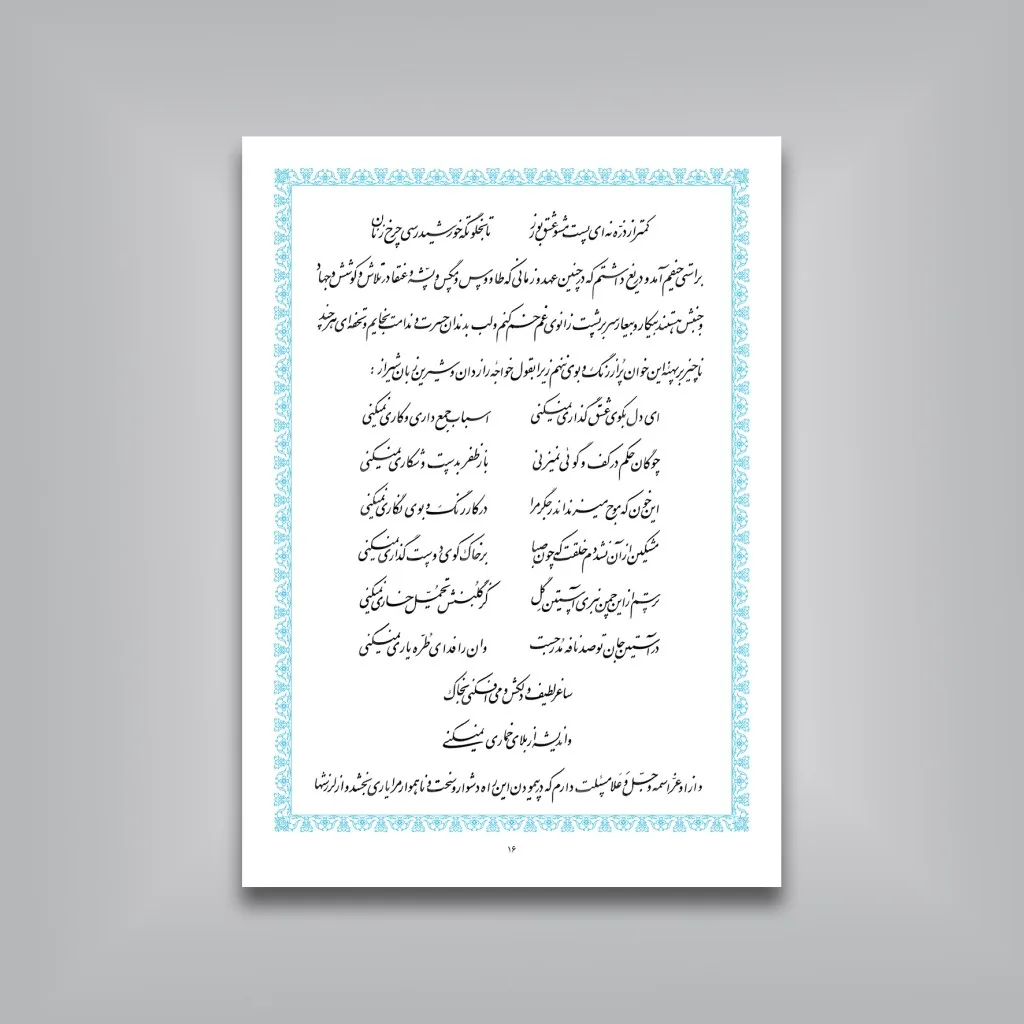 کمتر از ذرّه نه ای پست مشو عشق بورز تا بخلوتگه خورشید رسی چرخ زنان
براستی حیفم آمد و دریغ داشتم که در چنین عهد و زمانی که طاووس و مگس و پشّه و عنقا در تلاش و کوشش و جهاد
و جنبش هستند بیکار و بیعار سر بر پشت زانوی غم خم کنم و لب بدندان حسرت و ندامت بخایم و تحفه ای هر چند
ناچیز بر پهنهٔ این خوان پُر از رنگ و بوی ننهم زیرا بقول خواجهٔ رازدان و شیرین زبان شیراز :
ای دل بکوی عشق گذاری نمیکنی اسباب جمع داری و کاری نمیکنی
چوگان حکم در کف و گوئی نمیزنی باز ظفر بدست و شکاری نمیکنی
این خون که موج میزند اندر جگر مرا در کار رنگ و بوی نگاری نمیکنی
مشکین از آن نشد دم خلقت که چون صبا بر خاک کوی دوست گذاری نمیکنی
ترسم از این چمن نبری آستین گل کز گلبنش تحمّل خاری نمیکنی
در آستین جان تو صد نافه مُدرجست وان را فدای طُرّه یاری نمیکنی
ساغر لطیف و دلکش و می افکنی بخاک
و اندیشه از بلای خماری نمیکنی
و از او عزّ اسمه و جلّ و عَلا مسئلت دارم که در پیمودن این راه دشوار و سخت و ناهموار مرا یاری بخشد و از لرزشها
۱۶